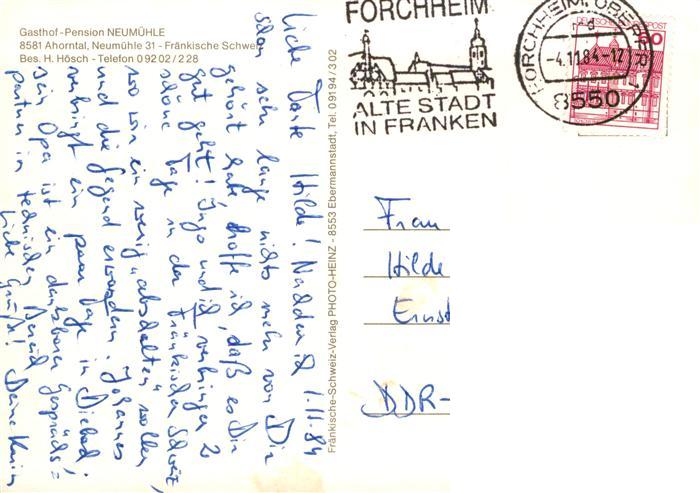 Gasthof-Pension NEUMÜHLE
8581 Ahorntal, Neumühle 31 - Fränkische Schweiz
Bes. H. Hösch - Telefon 0 92 02 / 2 28
1.11.84
Liebe Tante Hilde! Nachdem ich
schon sehr lange nichts mehr von Dir
gehört habe, hoffe ich, daß es Dir
gut geht! Ingo und ich verbringen 2
schöne Tage in der Fränkischen Schweiz,
wo wir ein wenig "abschalten" wollen
und die Gegend erwandern. Johannes
verbringt ein paar Tage in
sein Opa ist ein dankbarer Gesprächs=
partner im technischen Bereich
Liebe Grüße! Deine Karin
Fränkische-Schweiz-Verlag PHOTO-HEINZ - 8553 Ebermannstadt, Tel. 09194/3 02
FORCHHEIM
ALTE STADT
IN FRANKEN
FORCHHEIM, OBERFR
d
-4.11.84-12
8550
DEUTSCHE BUNDESPOST
60
Frau
Hilde
Ernst
DDR-